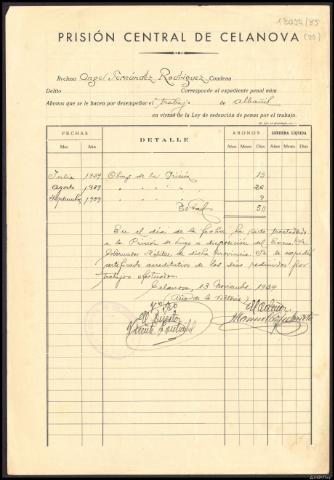 18054/85
(20)
PRISIÓN CENTRAL DE CELANOVA
Recluso Angel Fernández Rodríguez Condena
Delito Corresponde al expediente penal núm.
Abonos que se le hacen por desempeñar el trabajo de Albañil
en virtud de la Ley de redención de penas por el trabajo.
FECHAS DETALLE ABONOS CONDENA LÍQUIDA
Mes Año Años Meses Días Años Meses Días
Julio 1939 Obras de la Prisión 15
Agosto 1939 " " " " 26
Septiembre 1939 " " " " 9
Total 50
En el día de la fecha
a la Prisión de Lugo a disposición del
Gobernador Militar de dicha provincia
certificado acreditativo de los días redimidos por
trabajos efectuados.
Celanova, 13 Noviembre 1939
Año de la Victoria
Vº Bº
El Director